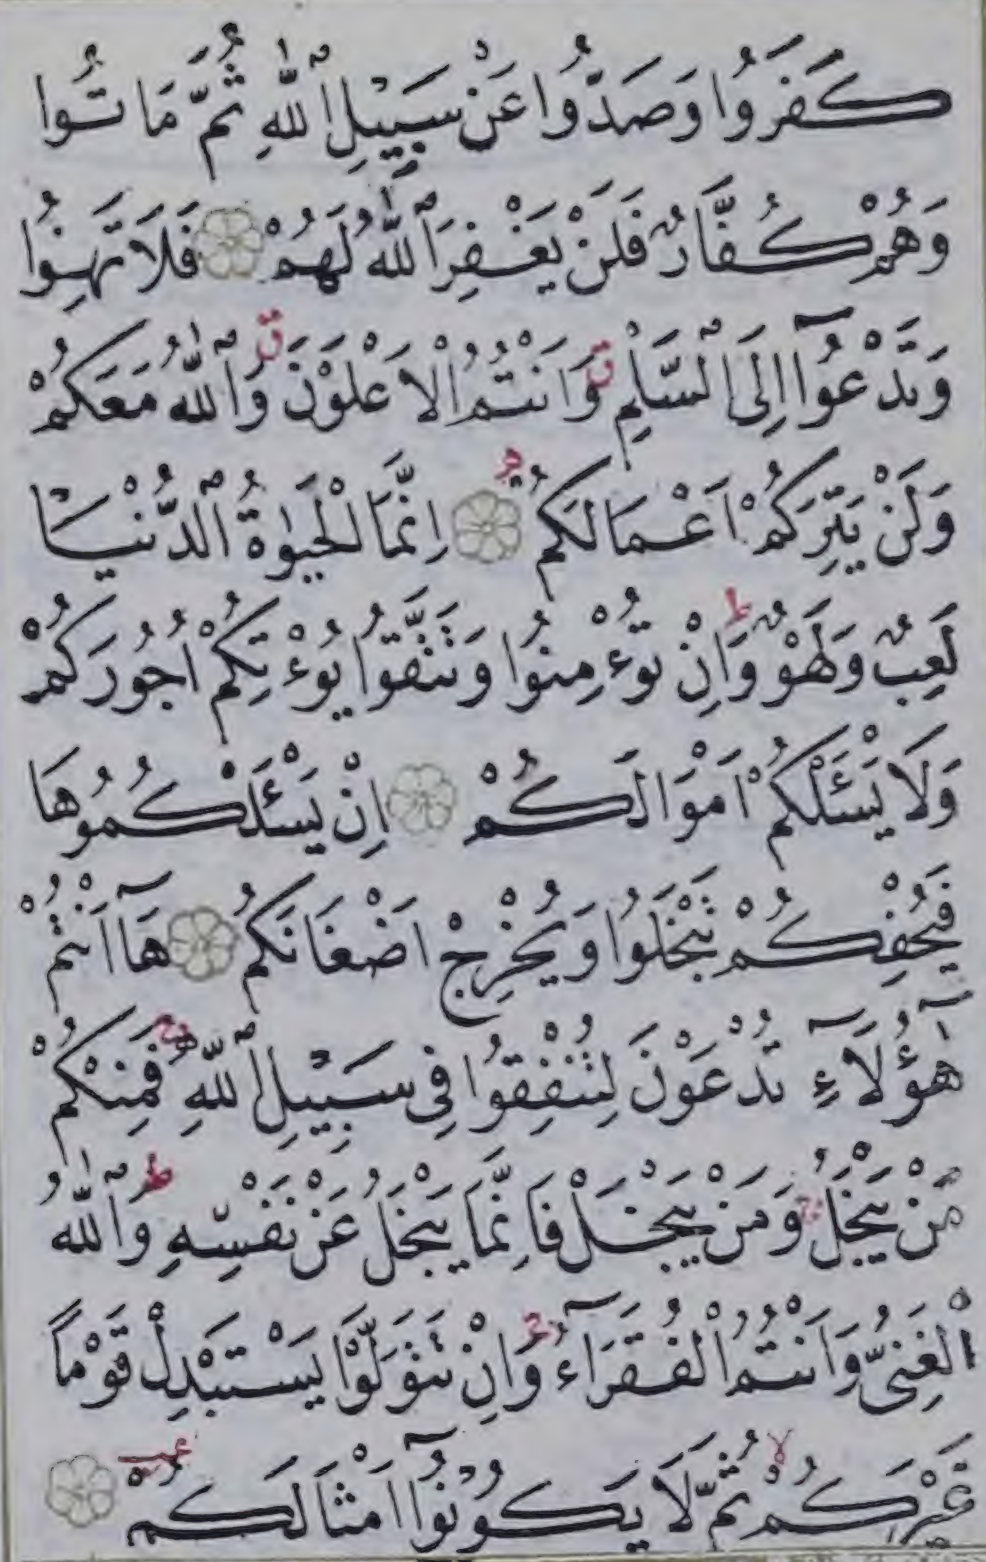 كَفَرُوا وَصَدُّوا عَنْ سَبِيلِ اللّٰهِ ثُمَّ مَاتُوا
وَهُمْ كُفَّارٌ فَلَنْ يَغْفِرَ اللّٰهُ لَهُمْ ۝ فَلَا تَهِنُوا
وَتَدْعُوٓا اِلَى السَّلْمِ ۗ وَاَنْتُمُ الْاَعْلَوْنَ ۗ وَاللّٰهُ مَعَكُمْ
وَلَنْ يَتِرَكُمْ اَعْمَالَكُمْ ۝ اِنَّمَا الْحَيٰوةُ الدُّنْيَا
لَعِبٌ وَلَهْوٌ ط وَاِنْ تُؤْمِنُوا وَتَتَّقُوا يُؤْتِكُمْ اُجُورَكُمْ
وَلَا يَسْـَٔلْكُمْ اَمْوَالَكُمْ ۝ اِنْ يَسْـَٔلْكُمُوهَا
فَيُحْفِكُمْ تَبْخَلُوا وَيُخْرِجْ اَضْغَانَكُمْ ۝ هَٓا اَنْتُمْ
هٰٓؤُلَٓاءِ تُدْعَوْنَ لِتُنْفِقُوا فِي سَبِيلِ اللّٰهِ ۚ فَمِنْكُمْ
مَنْ يَبْخَلُ ۚ وَمَنْ يَبْخَلْ فَاِنَّمَا يَبْخَلُ عَنْ نَفْسِهِ ط وَاللّٰهُ
الْغَنِيُّ وَاَنْتُمُ الْفُقَرَٓاءُ ۚ وَاِنْ تَتَوَلَّوْا يَسْتَبْدِلْ قَوْمًا
غَيْرَكُمْ ۙ ثُمَّ لَا يَكُونُوٓا اَمْثَالَكُمْ ۝